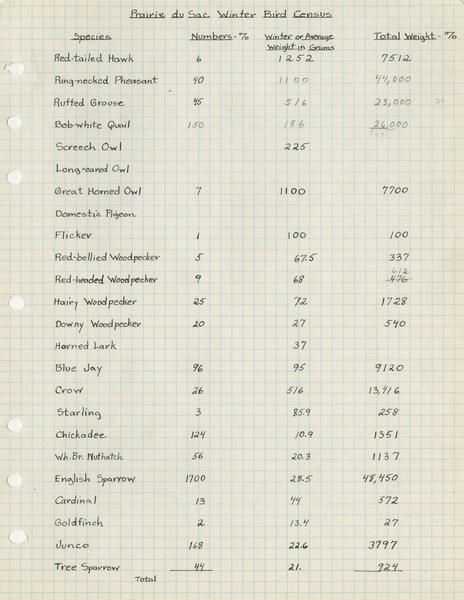 Prairie du Sac Winter Bird Census
Species Numbers - % Winter or Average Weight in Grams Total Weight - %
Red-tailed Hawk 6 1252 7512
Ring-necked Pheasant 40 1100 44,000
Ruffed Grouse 45 516 23,000
Bob-white Quail 150 186 26,000
Screech Owl 225
Long-eared Owl
Great Horned Owl 7 1100 7700
Domestic Pigeon
Flicker 1 100 100
Red-bellied Woodpecker 5 67.5 337
612
Red-headed Woodpecker 9 68 476
Hairy Woodpecker 25 72 1728
Downy Woodpecker 20 27 540
Horned Lark 37
Blue Jay 96 95 9120
Crow 26 516 13,416
Starling 3 85.9 258
Chickadee 124 10.9 1351
Wh. Br. Nuthatch 56 20.3 1137
English Sparrow 1700 28.5 48,450
Cardinal 13 44 572
Goldfinch 2 13.4 27
Junco 168 22.6 3797
Tree Sparrow 44 21. 924
Total